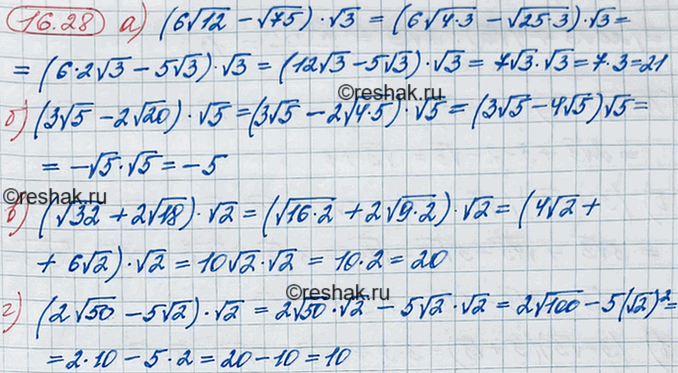 16.28 а) (6√12 − √75) · √3 = (6√4·3 − √25·3) · √3 =
= (6·2√3 − 5√3) · √3 = (12√3 − 5√3) · √3 = 7√3 · √3 = 7·3 = 21
©reshak.ru
б) (3√5 − 2√20) · √5 = (3√5 − 2√4·5) · √5 = (3√5 − 4√5)√5 =
= −√5 · √5 = −5
©reshak.ru
в) (√32 + 2√18) · √2 = (√16·2 + 2√9·2) · √2 = (4√2 +
+ 6√2) · √2 = 10√2 · √2 = 10·2 = 20
©reshak.ru
г) (2√50 − 5√2) · √2 = 2√50 · √2 − 5√2 · √2 = 2√100 − 5(√2)² =
= 2·10 − 5·2 = 20 − 10 = 10